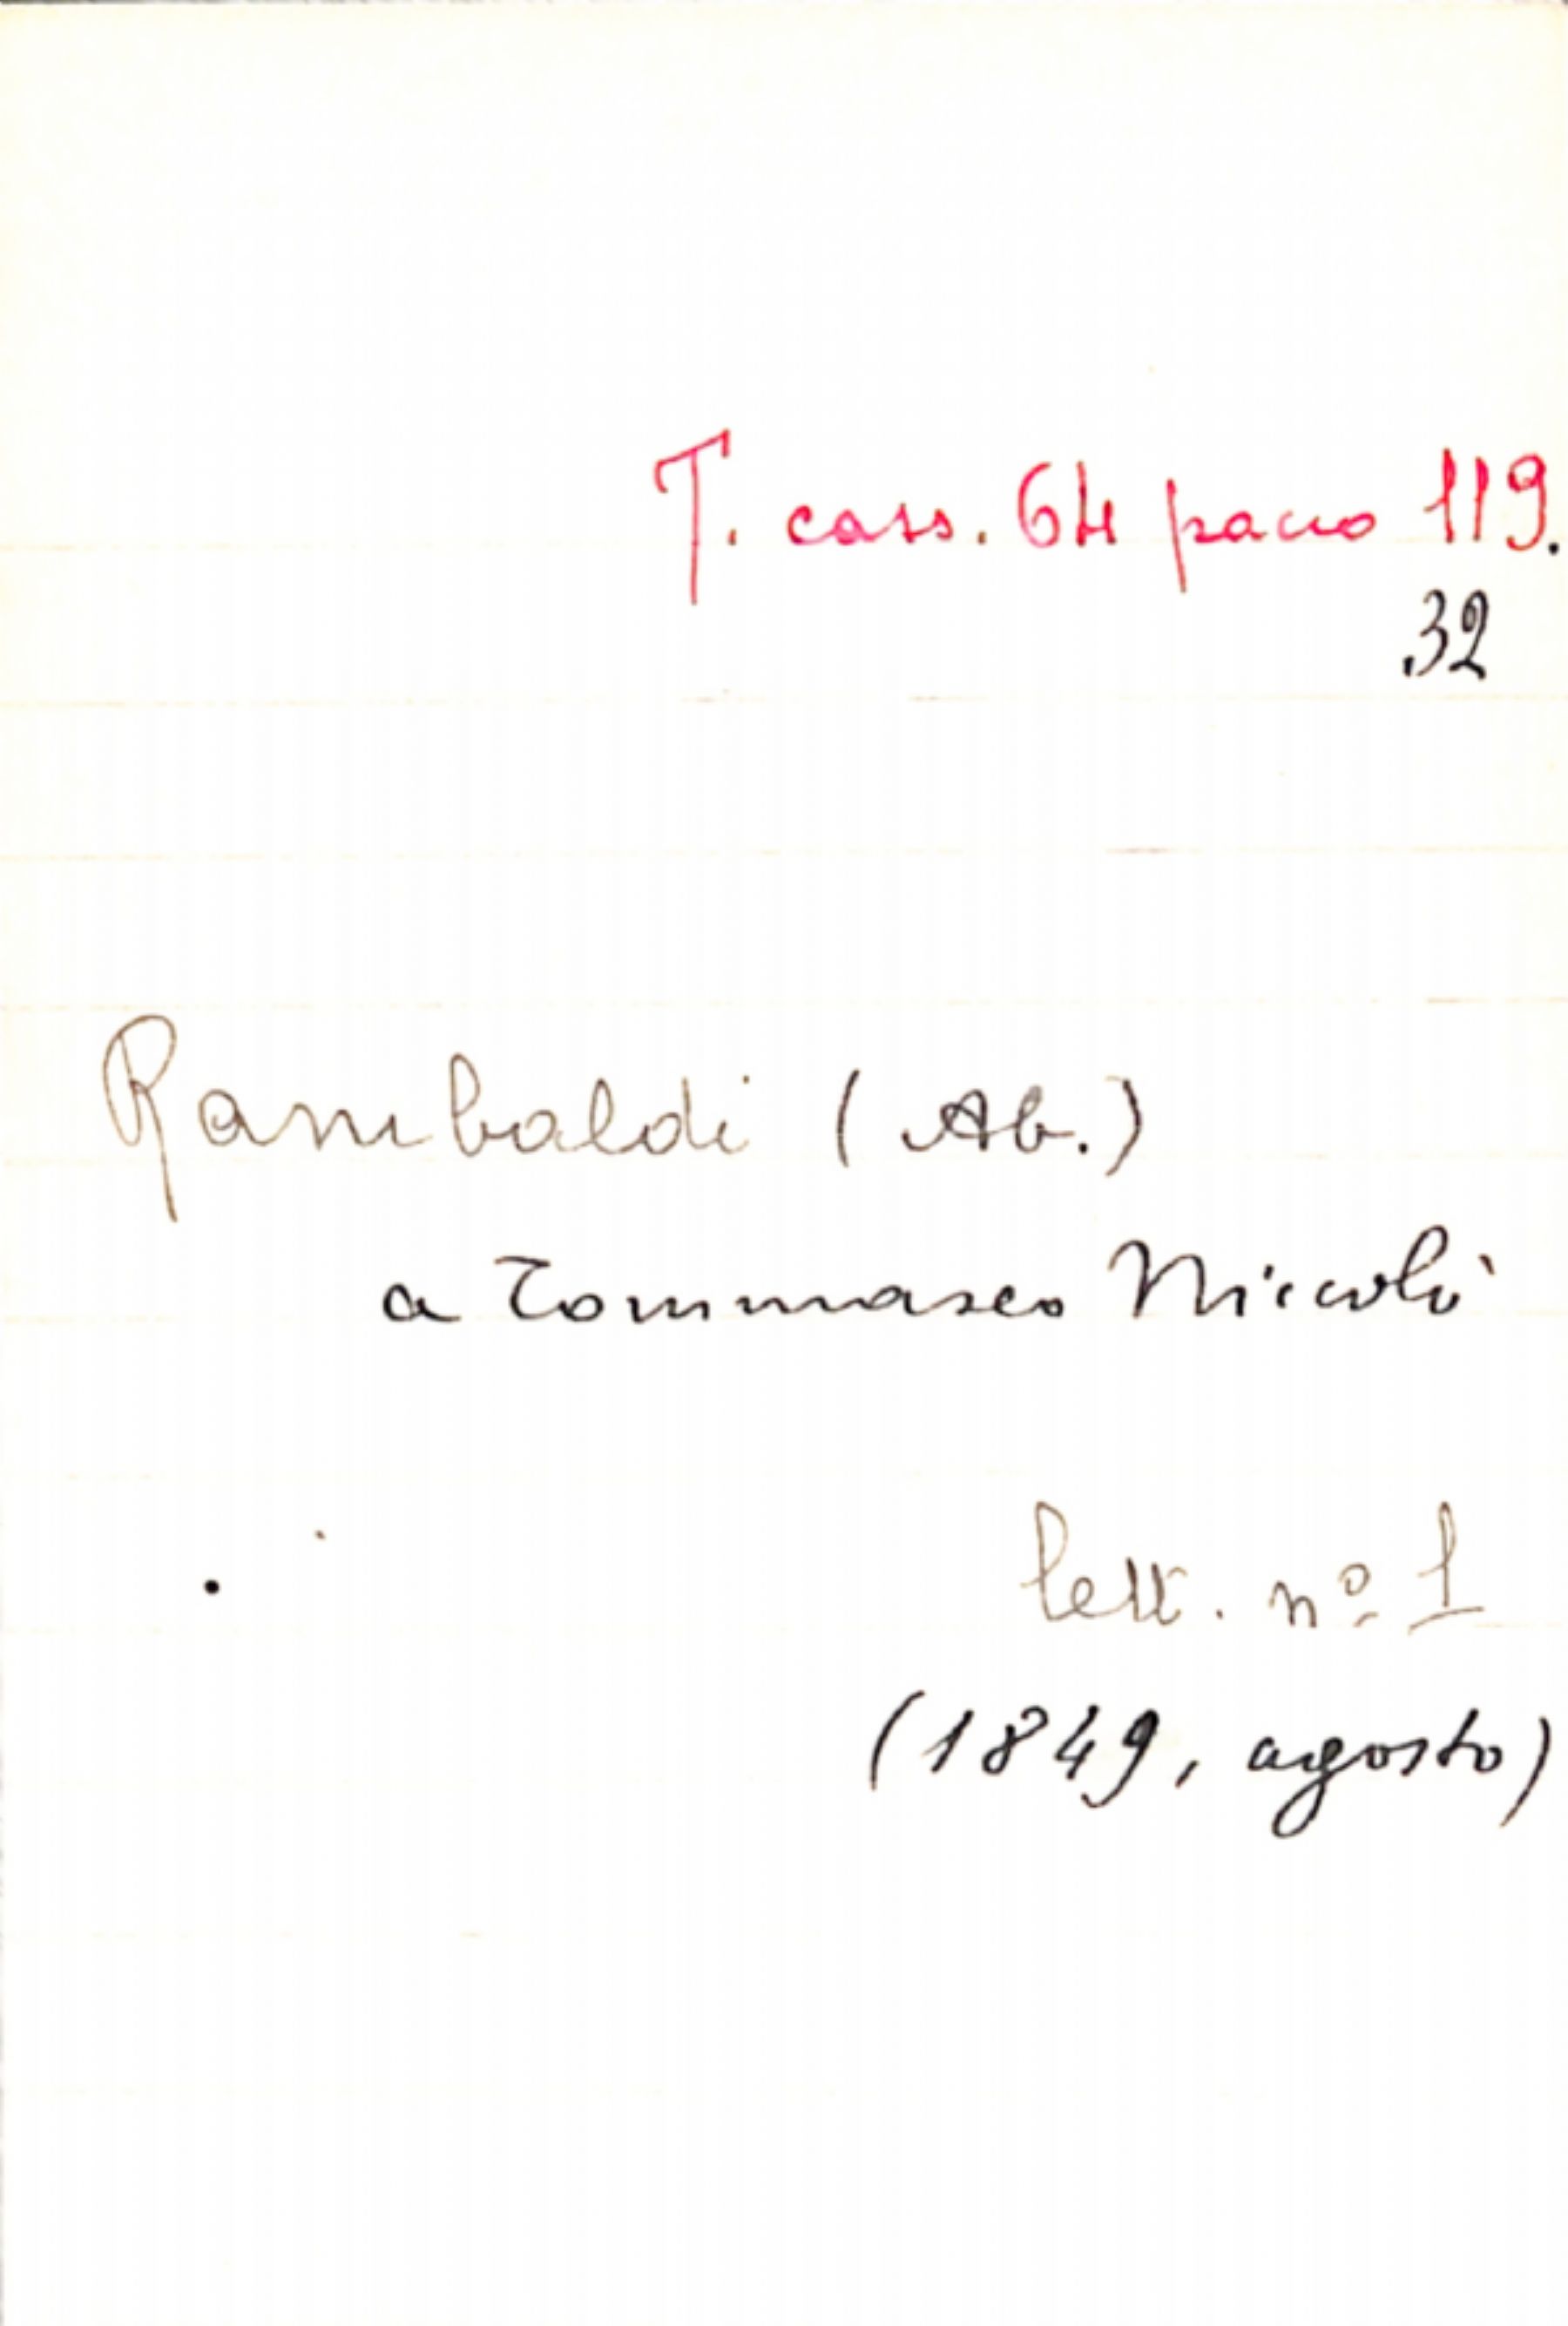 T. cass. 64 pacco 119.
32
Rambaldi (Ab.)
a Tommaseo Niccolò
lett. nº 1
(1849, agosto)